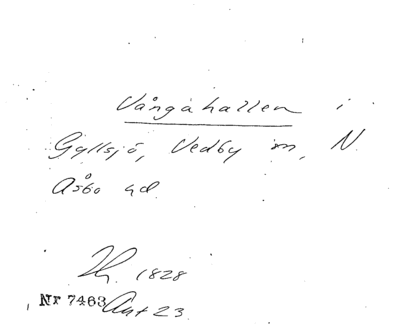 Vångahallen i
Gyllsjö, Vedby sn, N.
Åsbo hd
1828
Nr 7463 Ant 23.